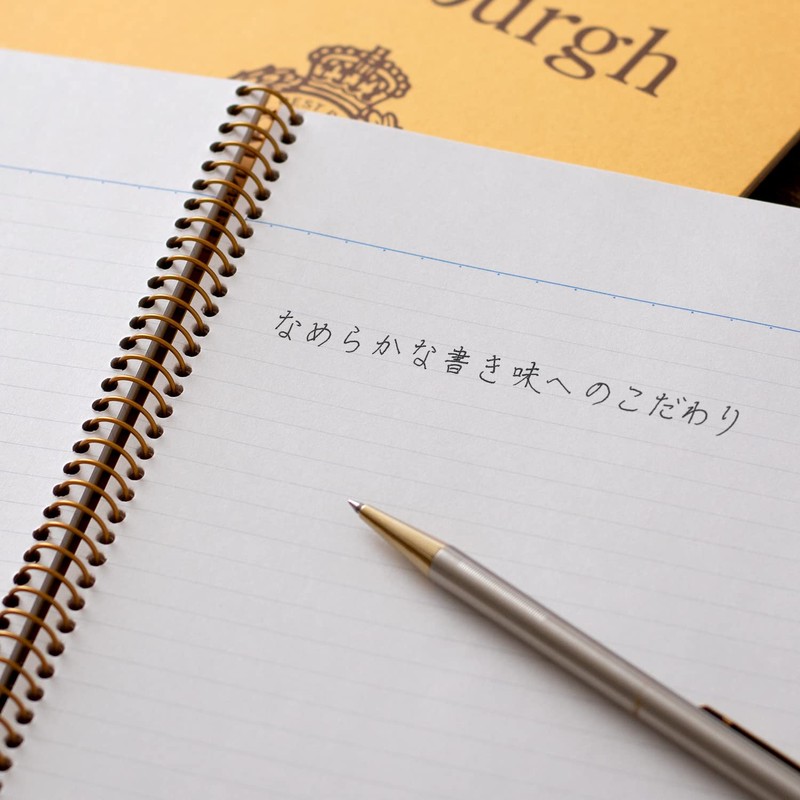 burgh
EST
なめらかな書き味へのこだわり